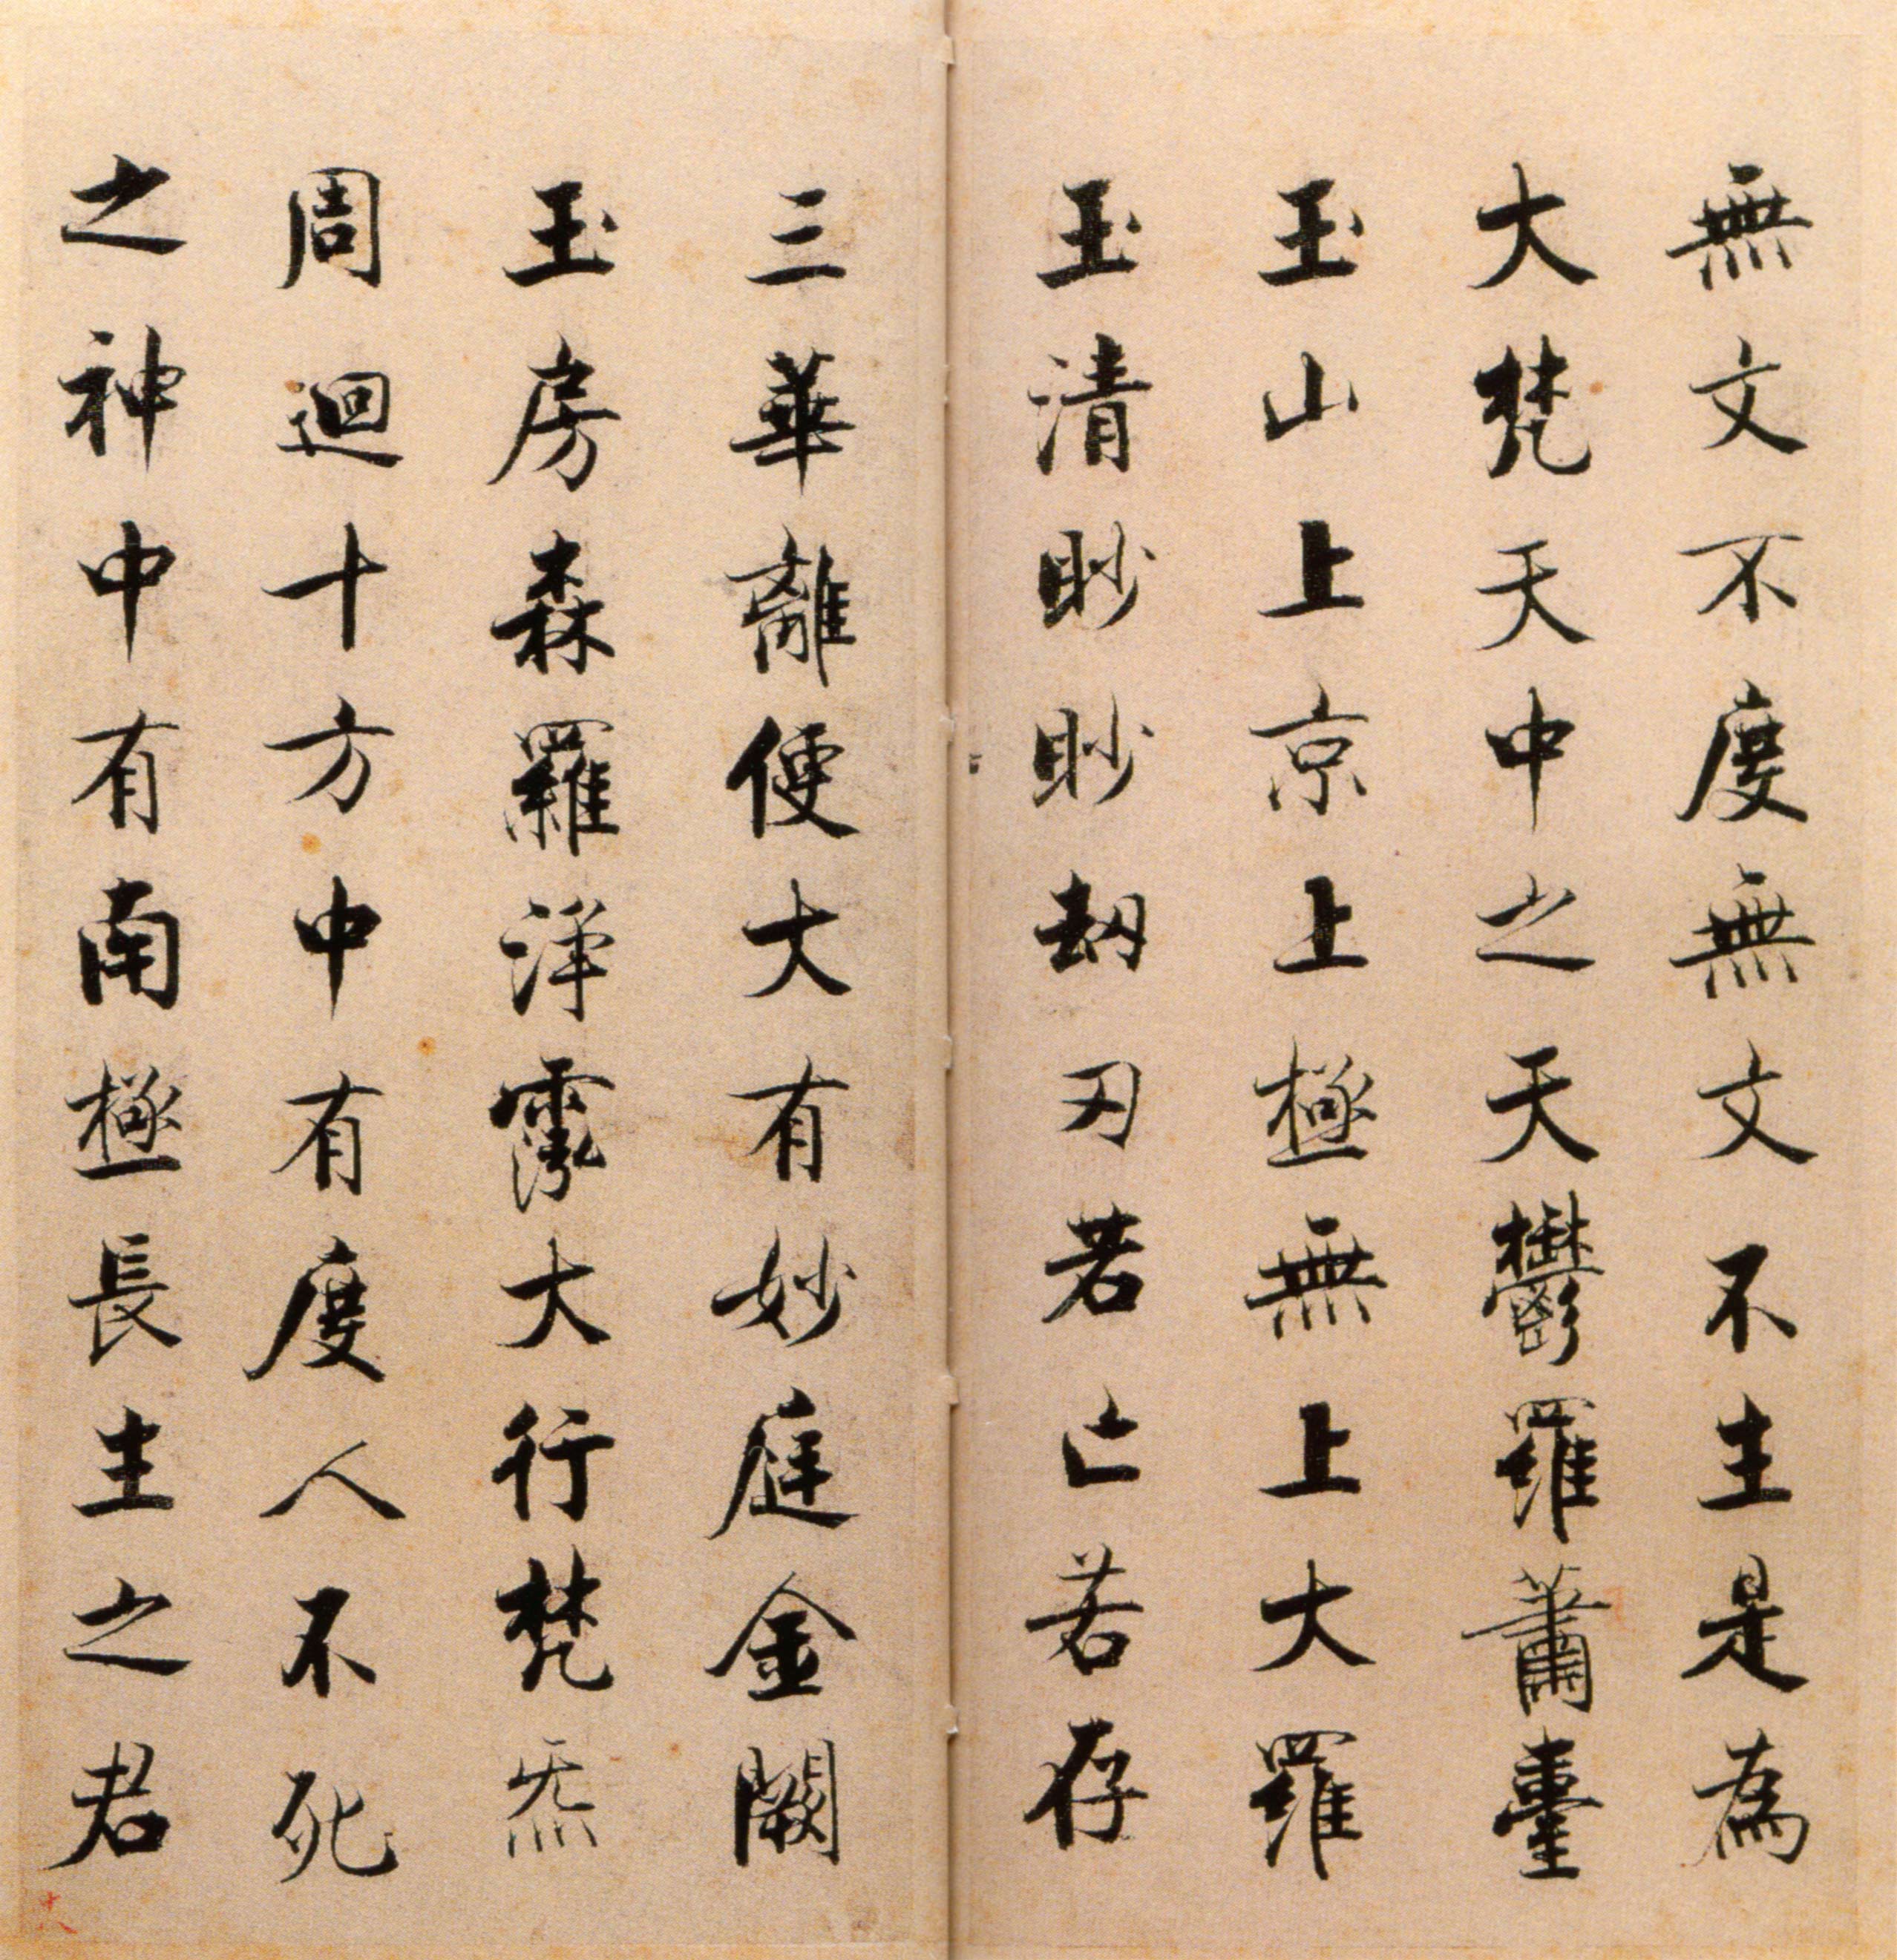 無文不度無文不生是為
大梵天中之天鬱羅蕭臺
玉山上京上極無上大羅
玉清眇眇刼刃若亡若存
三華離便大有妙庭金闕
玉房森羅淨霐大行梵炁
周迴十方中有度人不死
之神中有南極長生之君
十八